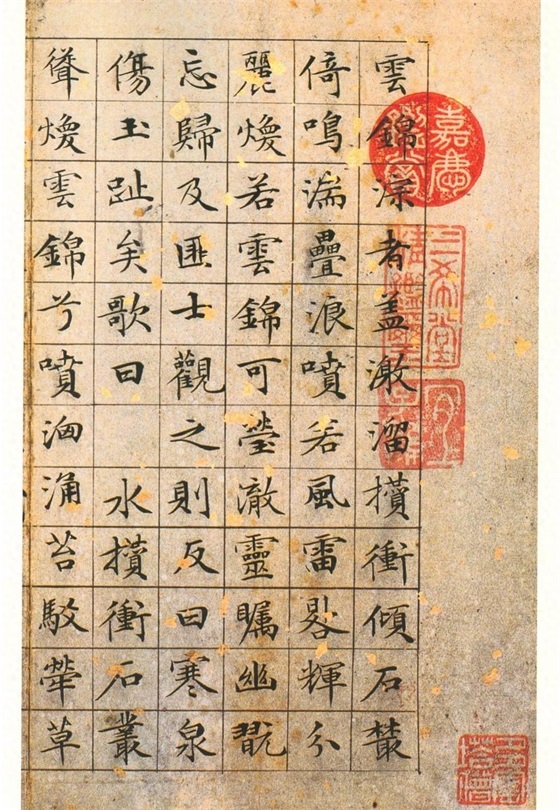 雲錦淙者盖激溜攢衝傾石藂
倚鳴湍疊浪噴若風雷輝分
麗煥若雲錦可瑩澈靈矚幽翫
忘歸及匪士觀之則反曰寒泉
傷玉趾矣歌曰 水攢衝石叢
聳煥雲錦兮噴洶涌苔駮犖草
三希堂精鑑璽
宜子孫